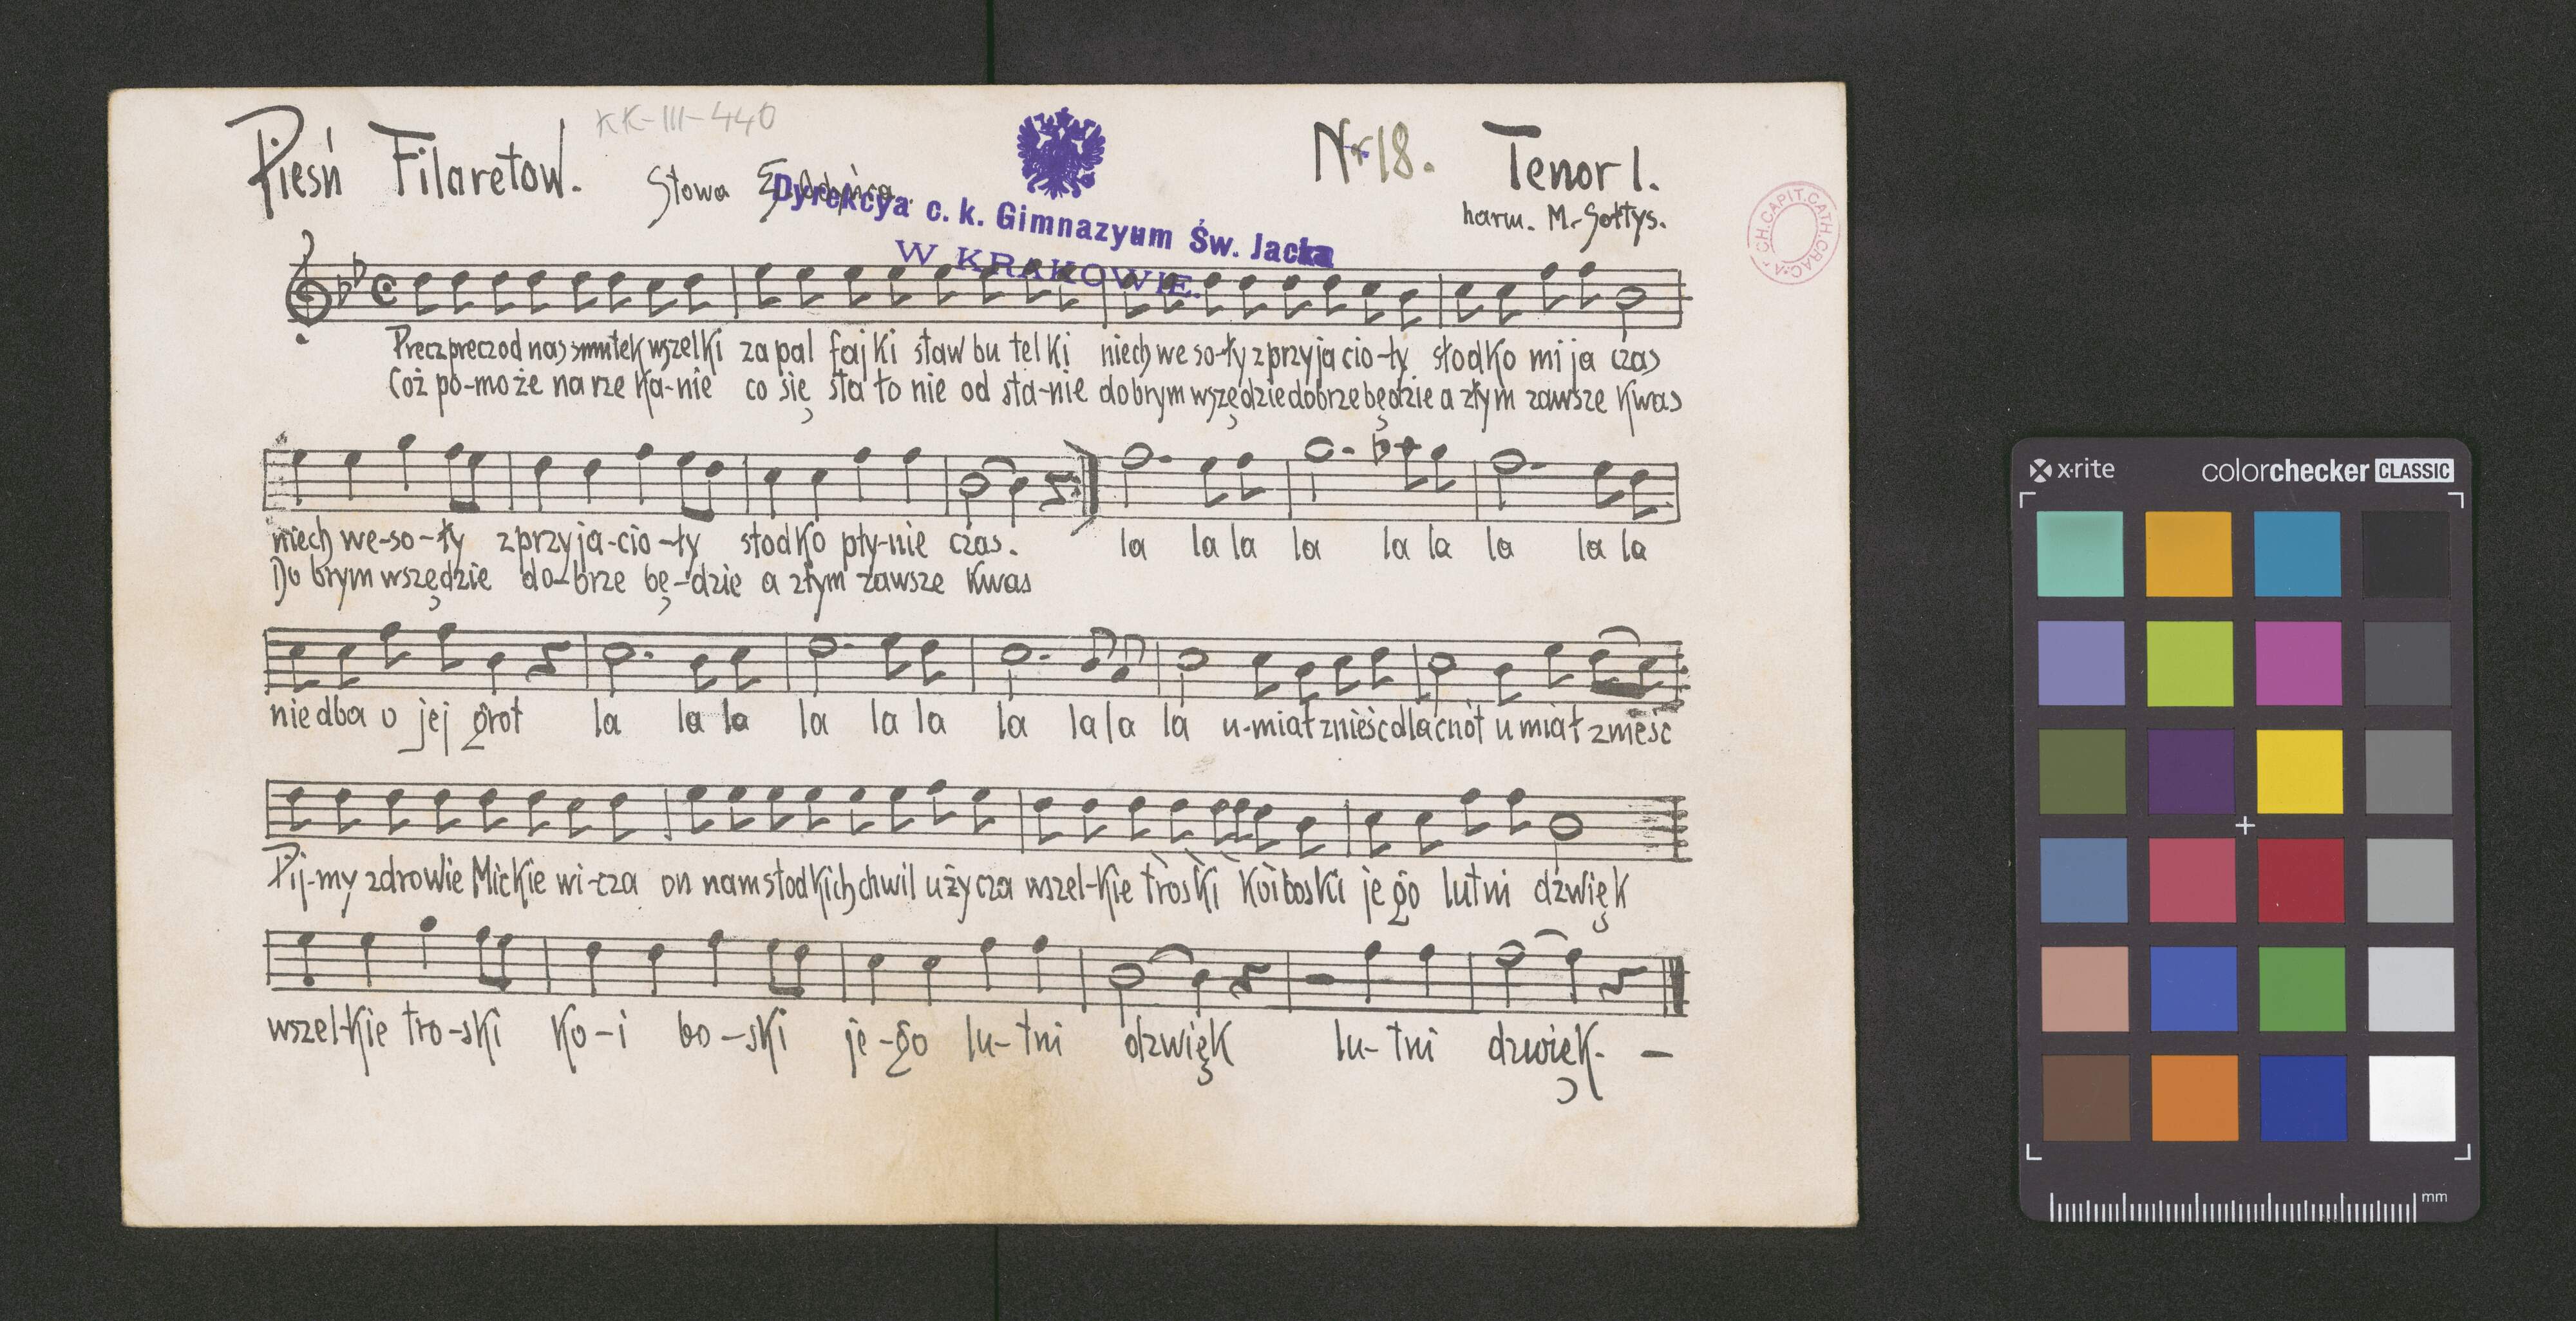 Pieśń Filaretow.
KK-III-440
Słowa E. Odyńca.
Nr 18.
Tenor I.
harm. M. Sołtys.
Dyrekcya c. k. Gimnazyum Św. Jacka
W KRAKOWIE.
ARCH.CAPIT.CATH.CRAC.
Precz precz od nas smutek wszelki za pal faj ki staw bu tel ki niech we so-ły z przy ja cio-ły słodko mi ja czas
Coż po-może na rze ka-nie co się sta ło nie od sta-nie dobrym wszędzie dobrze będzie a złym zawsze Kwas
niech we-so-ły z przy ja-cio-ły słodko pły-nie czas. la la la la la la la la la
Do brym wszędzie do-brze bę-dzie a złym zawsze Kwas
nie dba o jej grot la la la la la la la la la la u-miał znieść dla cnót u miał znieść
Pij-my zdrowie Mickie wi-cza on nam słodkich chwil uży cza wszel-kie troski koi boski je go lutni dźwięk
wszel-kie tro-ski Ko-i bo-ski je-go lu-tni dźwięk lu-tni dzwięk- —
x·rite
colorchecker CLASSIC
mm